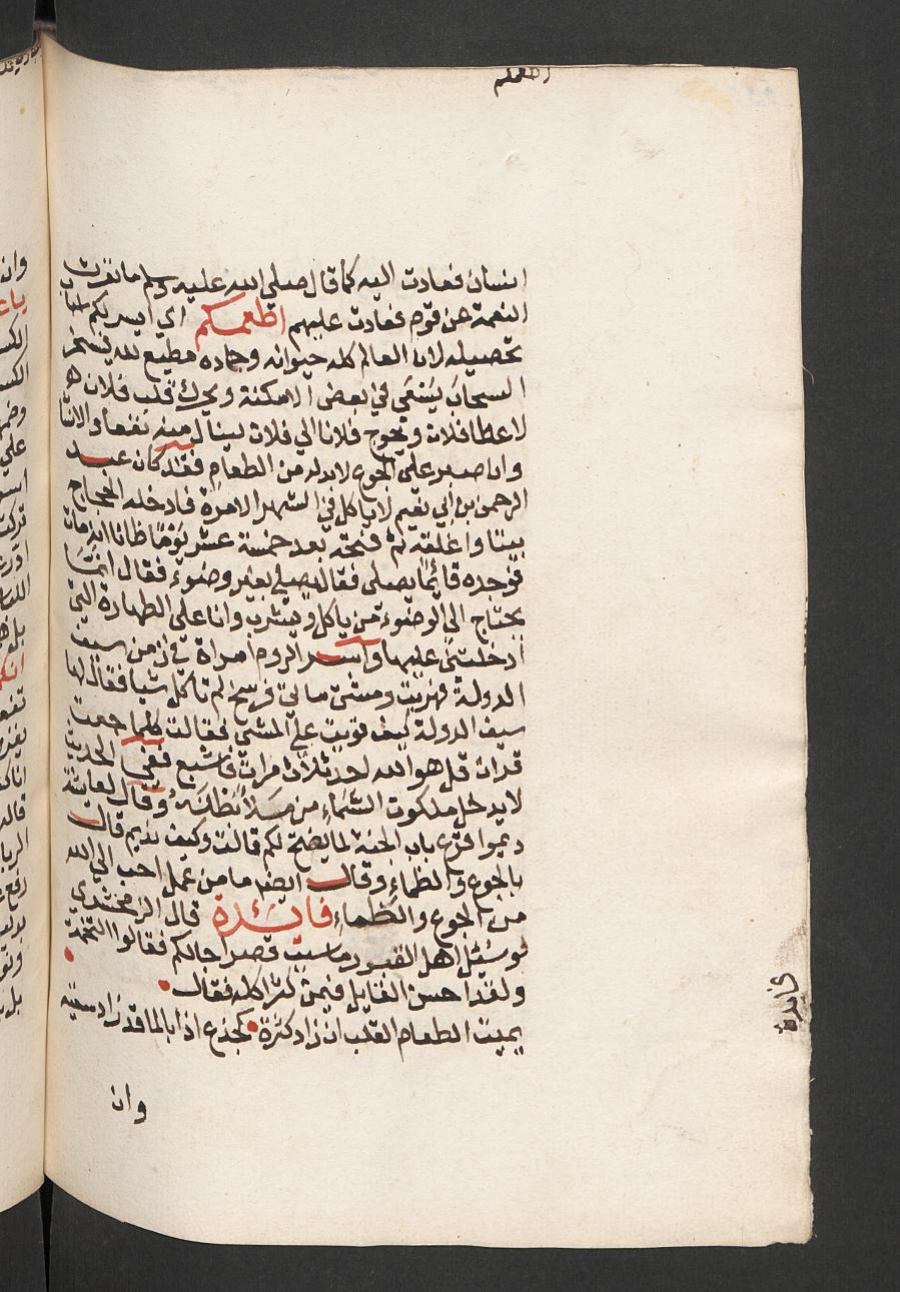 انسان فعادت اليه كما قال صلى الله عليه وسلم ما نفرت
النعمة عن قوم فعادت عليهم اطعمكم اي ايسر لكم اسباب
تحصيله لان العالم كله حيوانه وجماده مطيع لله يسخر
السحاب يسقي في بعض الامكنة ويحرك قلب فلان
لاعطا فلان ويحوج فلانا الي فلان لينال منه نفعا والانسا
وان صبر علي الجوع لا بد له من الطعام فقد كان عبد
الرحمن بن ابي نعيم لا ياكل في الشهر الا مرة فادخله الحجاج
بيتا واغلقه ثم فتحه بعد خمسة عشر يوما ظانا انه مات
فوجده قائما يصلى فقال يصلي بغير وضوء فقال انما
يحتاج الى الوضوء من ياكل ويشرب وانا على الطهارة التي
ادخلتني عليها واسر الروم امراة في زمن سيف
الدولة فهربت ومشت مايتي فرسخ لم تاكل شيا فقال لها
سيف الدولة كيف قويت على المشي فقالت كلما جعت
قرات قل هو الله احد ثلاث مرات فاشبع ففي الحديث
لا يدخل ملكوت السماء من ملأ بطنه وقال لعايشة
ديموا قرع باب الجنة لما يفتح لكم قالت وكيف نديم قال
بالجوع والظماء وقال ايضا ما من عمل احب الى الله
من الجوع والظماء فائدة قال الزمخشري
لو سئل اهل القبور ما سبب قصر اجالكم فقالوا التخمة
ولقد احسن القايل فيمن كثر اكله فقال
يميت الطعام القلب ان زاد كثرة كجذع اذا بالما قد زاد سقيه
وان
فايدة